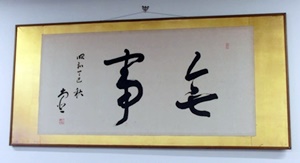 無事
昭和丁巳秋